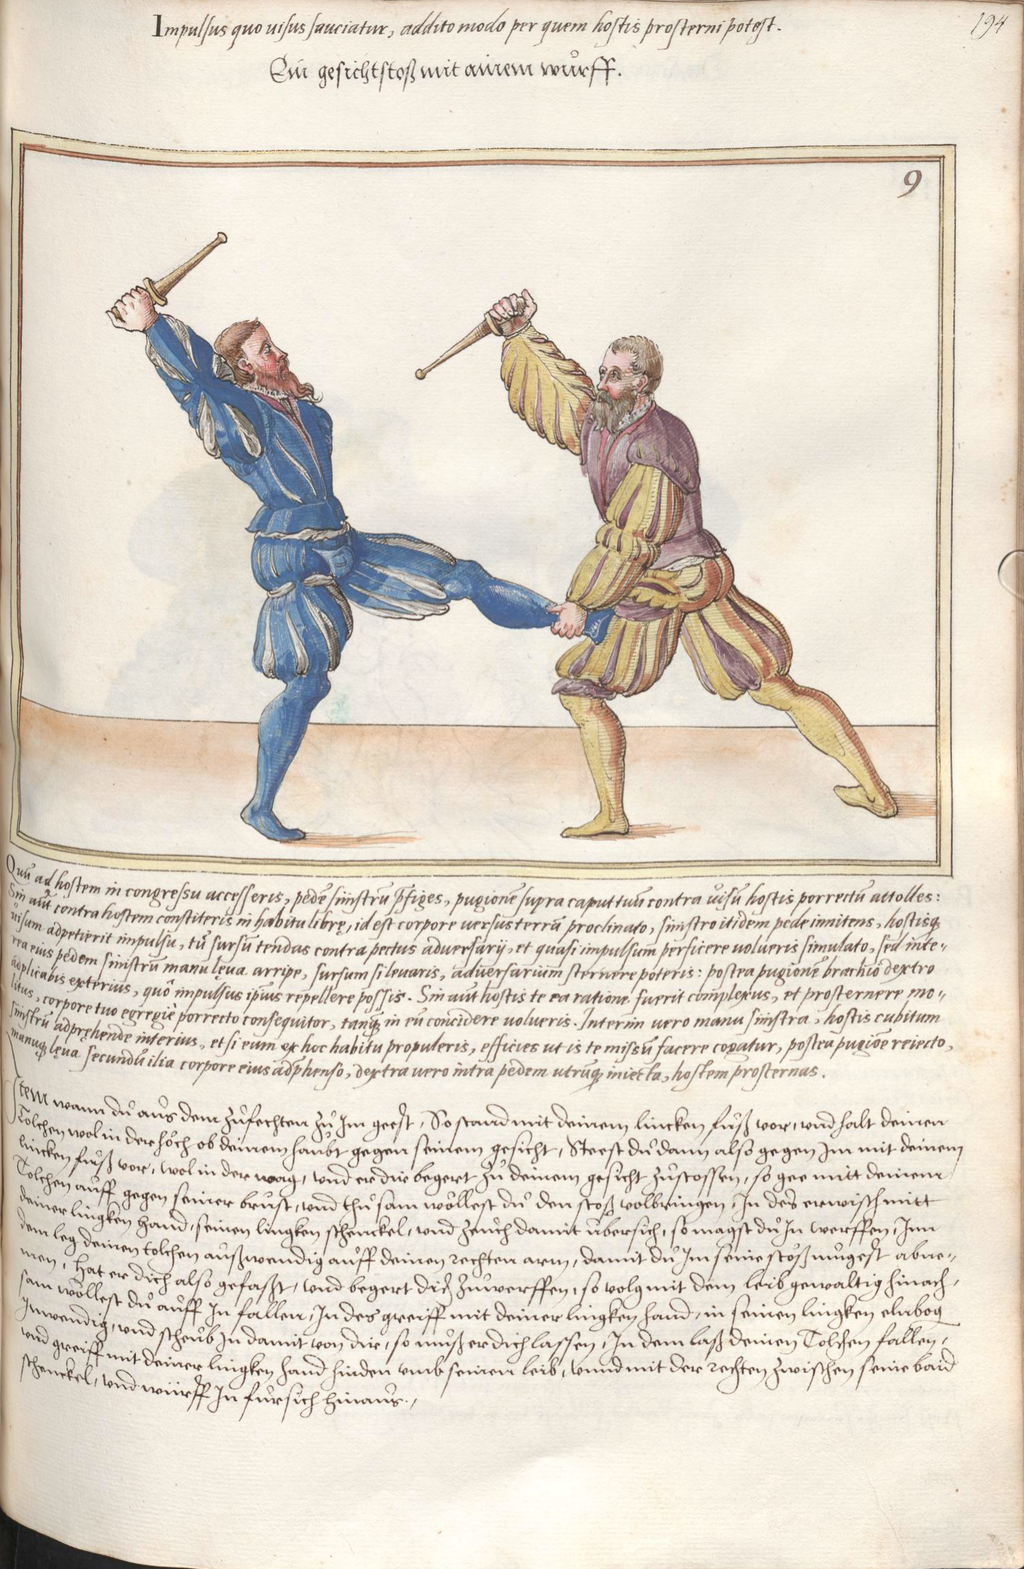 Impulsus quo uisus sauciatur, addito modo per quem hostis prosterni potest.
194
Ein gesichtstoß mit ainem wurff.
9
Quũ ad hostem in congressu accesseris, pedẽ sinistrũ p̃figes, pugionẽ supra caput tuũ contra uisũ hostis porrectũ attolles:
Sin aũt contra hostem constiteris in habitu libre, id est corpore uersus terrã proclinato, sinistro itidem pede innitens, hostisq̃
uisum adpetierit impulsu, tũ sursũ tendas contra pectus aduersarij, et quasi impulsum perficere uolueris simulato, sed inte-
rea eius pedem sinistrũ manu leua arripe, sursum si leuaris, aduersarium sternere poteris: postea pugionẽ brachio dextro
adplicabis exterius, quo impulsus ipsius repellere possis. Sin aũt hostis te ea ratione fuerit complexus, et prosternere mo-
litus, corpore tuo egregie porrecto consequitor, tanq̃ in eũ concidere uolueris. Interim uero manu sinistra, hostis cubitum
sinistrũ adprehende interius, et si eum ex hoc habitu propuleris, efficies ut is te missũ facere cogatur, postea pugiõe reiecto,
manuq̃ leua secundũ ilia corpore eius adp̃henso, dextra uero intra pedem utrũq̃ iniecta, hostem prosternas.
Item wann du aus dem zufechten zu Im geest, So stand mit deinem lincken fuß vor, vnd halt deinen
Tolchen wol in der höch ob deinem haubt gegen seinem gesicht, Steest du dann also gegen Im mit deinem
lincken fuß vor, wol in der wag, vnd er dir begert zu deinem gesicht zustossen, so gee mitt deinem
Tolchen auff gegen seiner brust, vnd thu sam wöllest du den stoß volbringen, In des erwisch mitt
deiner lingken hand, seinen lingken schenckel, vnd zeuch damit übersich, so magst du In werffen, Inn
dem leg deinen tolchen außwendig auff deinen rechten arm, damit du Im seine stöß mugest abne-
men, Hat er dich also gefaßt, vnd begert dich zuwerffen, so volg mit dem leib gewaltig hinach,
sam wöllest du auff In fallen, In des greiff mit deiner lingken hand, in seinen lingken elnbog
Inwendig, vnd scheub In damit von dir, so muß er dich lassen, In dem laß deinen Tolchen fallen,
vnd greiff mit deiner lingken hand hinden vmb seinen leib, vnnd mit der rechten zwischen seine baid
schenckel, vnd würff In fur sich hinaus.,